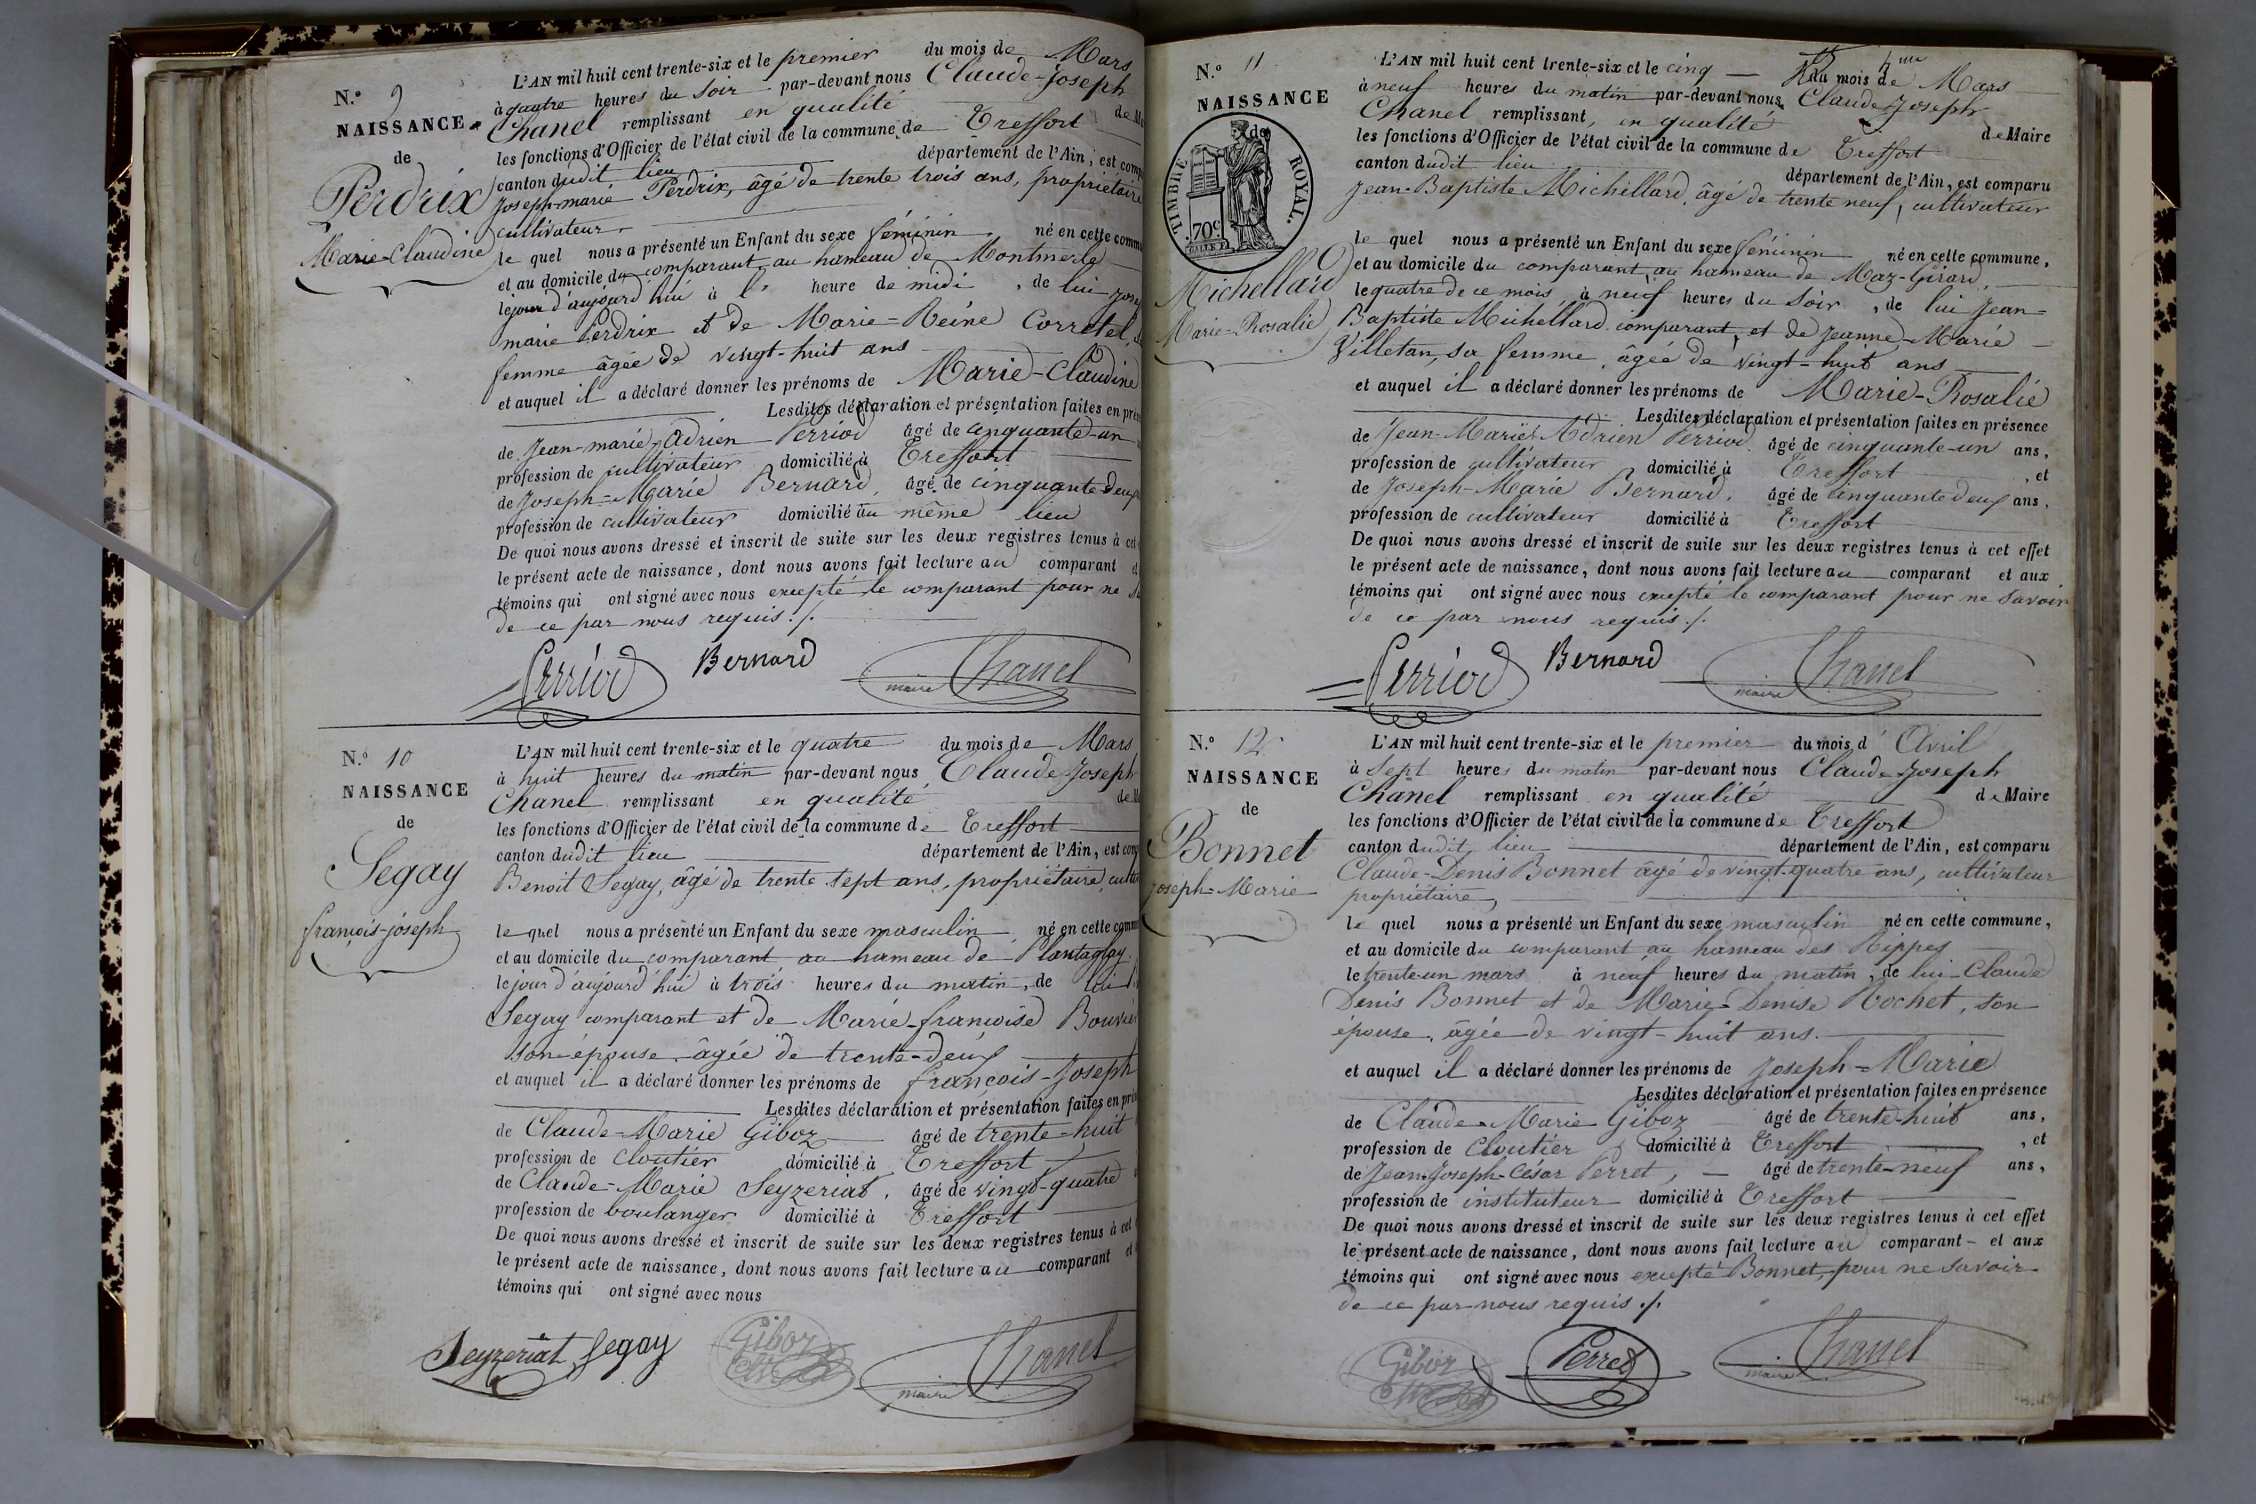 N.º 9
NAISSANCE
de
Perdrix
Marie-Claudine
L'AN mil huit cent trente-six et le premier du mois de Mars
à quatre heures du soir par-devant nous Claude-Joseph
Chanel remplissant en qualité de
les fonctions d'Officier de l'état civil de la commune de Treffort
canton dudit lieu département de l'Ain, est
Joseph-marie Perdrix, âgé de trente trois ans, propriétaire
cultivateur
le quel nous a présenté un Enfant du sexe féminin né en cette
et au domicile du comparant au hameau de Montmerle
le jour d'aujourd'hui à heure de midi, de lui
marie Perdrix et de Marie-Reine Corretel,
femme âgée de vingt-huit ans
et auquel il a déclaré donner les prénoms de Marie-Claudine
Lesdites déclaration et présentation faites en
de Jean-marie-Adrien Perriod âgé de cinquante-un
profession de cultivateur domicilié à Treffort
de Joseph-Marie Bernard, âgé de cinquante deux
profession de cultivateur domicilié au même lieu
De quoi nous avons dressé et inscrit de suite sur les deux registres tenus à cet
le présent acte de naissance, dont nous avons fait lecture au comparant et
témoins qui ont signé avec nous excepté le comparant pour ne
de ce par nous requis ./.
Perriod Bernard Chanel
maire
N.º 10
NAISSANCE
de
Segay
françois-joseph
L'AN mil huit cent trente-six et le quatre du mois de Mars
à huit heures du matin par-devant nous Claude-Joseph
Chanel remplissant en qualité de
les fonctions d'Officier de l'état civil de la commune de Treffort
canton dudit lieu département de l'Ain, est
Benoit Segay, âgé de trente sept ans, propriétaire
le quel nous a présenté un Enfant du sexe masculin né en cette
et au domicile du comparant au hameau de Plantaglay
le jour d'aujourd'hui à trois heures du matin, de lui
Segay comparant et de Marie-françoise Bouvier
son épouse, âgée de trente-deux
et auquel il a déclaré donner les prénoms de françois-Joseph
Lesdites déclaration et présentation faites en
de Claude-Marie Giboz âgé de trente-huit
profession de cloutier domicilié à Treffort
de Claude-Marie Seyzeriat, âgé de vingt-quatre
profession de boulanger domicilié à Treffort
De quoi nous avons dressé et inscrit de suite sur les deux registres tenus à cet
le présent acte de naissance, dont nous avons fait lecture au comparant et
témoins qui ont signé avec nous
Seyzeriat Segay Giboz Chanel
maire
N.º 11
NAISSANCE
de
TIMBRE ROYAL.
70c
Michellard
Marie-Rosalie
L'AN mil huit cent trente-six et le cinq du mois de Mars
à neuf heures du matin par-devant nous Claude-Joseph
Chanel remplissant en qualité de Maire
les fonctions d'Officier de l'état civil de la commune de Treffort
canton dudit lieu département de l'Ain, est comparu
Jean-Baptiste Michellard, âgé de trente neuf, cultivateur
le quel nous a présenté un Enfant du sexe féminin né en cette commune,
et au domicile du comparant, au hameau de Maz-Girard,
le quatre de ce mois, à neuf heures du soir, de lui Jean-
Baptiste Michellard comparant, et de Jeanne-Marie
Villetan, sa femme, âgée de vingt-huit ans
et auquel il a déclaré donner les prénoms de Marie-Rosalie
Lesdites déclaration et présentation faites en présence
de Jean-Marie-Adrien Perriod âgé de cinquante-un ans,
profession de cultivateur domicilié à Treffort, et
de Joseph-Marie Bernard, âgé de cinquante deux ans,
profession de cultivateur domicilié à Treffort
De quoi nous avons dressé et inscrit de suite sur les deux registres tenus à cet effet
le présent acte de naissance, dont nous avons fait lecture au comparant et aux
témoins qui ont signé avec nous excepté le comparant pour ne savoir
de ce par nous requis ./.
Perriod Bernard Chanel
maire
N.º 12
NAISSANCE
de
Bonnet
Joseph-Marie
L'AN mil huit cent trente-six et le premier du mois d'Avril
à sept heures du matin par-devant nous Claude-Joseph
Chanel remplissant en qualité de Maire
les fonctions d'Officier de l'état civil de la commune de Treffort
canton dudit lieu département de l'Ain, est comparu
Claude-Denis Bonnet âgé de vingt-quatre ans, cultivateur
propriétaire,
le quel nous a présenté un Enfant du sexe masculin né en cette commune,
et au domicile du comparant au hameau des Rippes
le trente-un mars à neuf heures du matin, de lui Claude
Denis Bonnet et de Marie-Denise Rochet, son
épouse, âgée de vingt-huit ans.
et auquel il a déclaré donner les prénoms de Joseph-Marie
Lesdites déclaration et présentation faites en présence
de Claude-Marie Giboz âgé de trente-huit ans,
profession de Cloutier domicilié à Treffort, et
de Jean-Joseph-César Perret, âgé de trente-neuf ans,
profession de instituteur domicilié à Treffort
De quoi nous avons dressé et inscrit de suite sur les deux registres tenus à cet effet
le présent acte de naissance, dont nous avons fait lecture au comparant et aux
témoins qui ont signé avec nous excepté Bonnet, pour ne savoir
de ce par nous requis ./.
Giboz Perret Chanel
maire